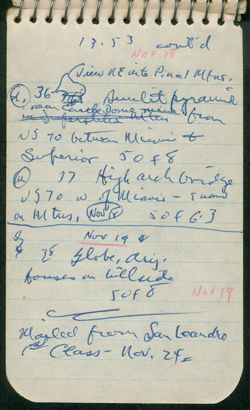 13.53 cont'd
Nov 18
View NE into Pinal Mtns.
36 Small pyramid
from
US 70 between Miami &
Superior 50 f 8
37 High arch bridge
US 70 W of Miami -
in Mtns, Nov 18 50 f 6.3
Nov 19
38 Globe, Ariz.
houses on hillside
50 f 8 Nov 19
Mailed from San Leandro
1st Class - Nov. 24